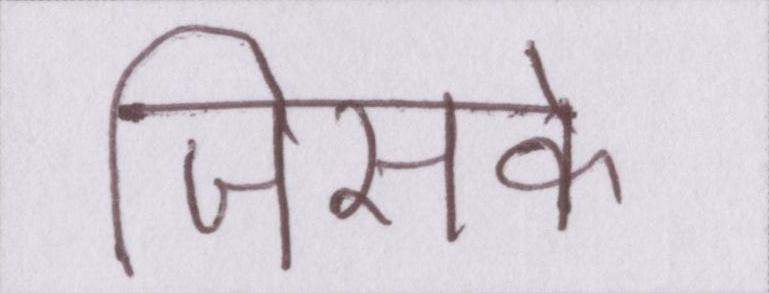 जिसके